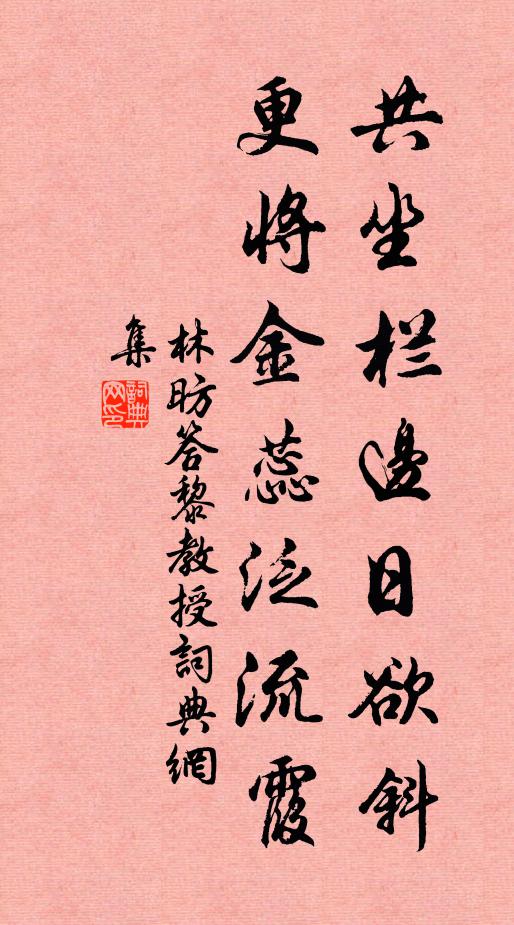 共坐栏邊日欲斜
更將金蕊泛流霞
林昉答黎教授詞典網
集
詞典网印